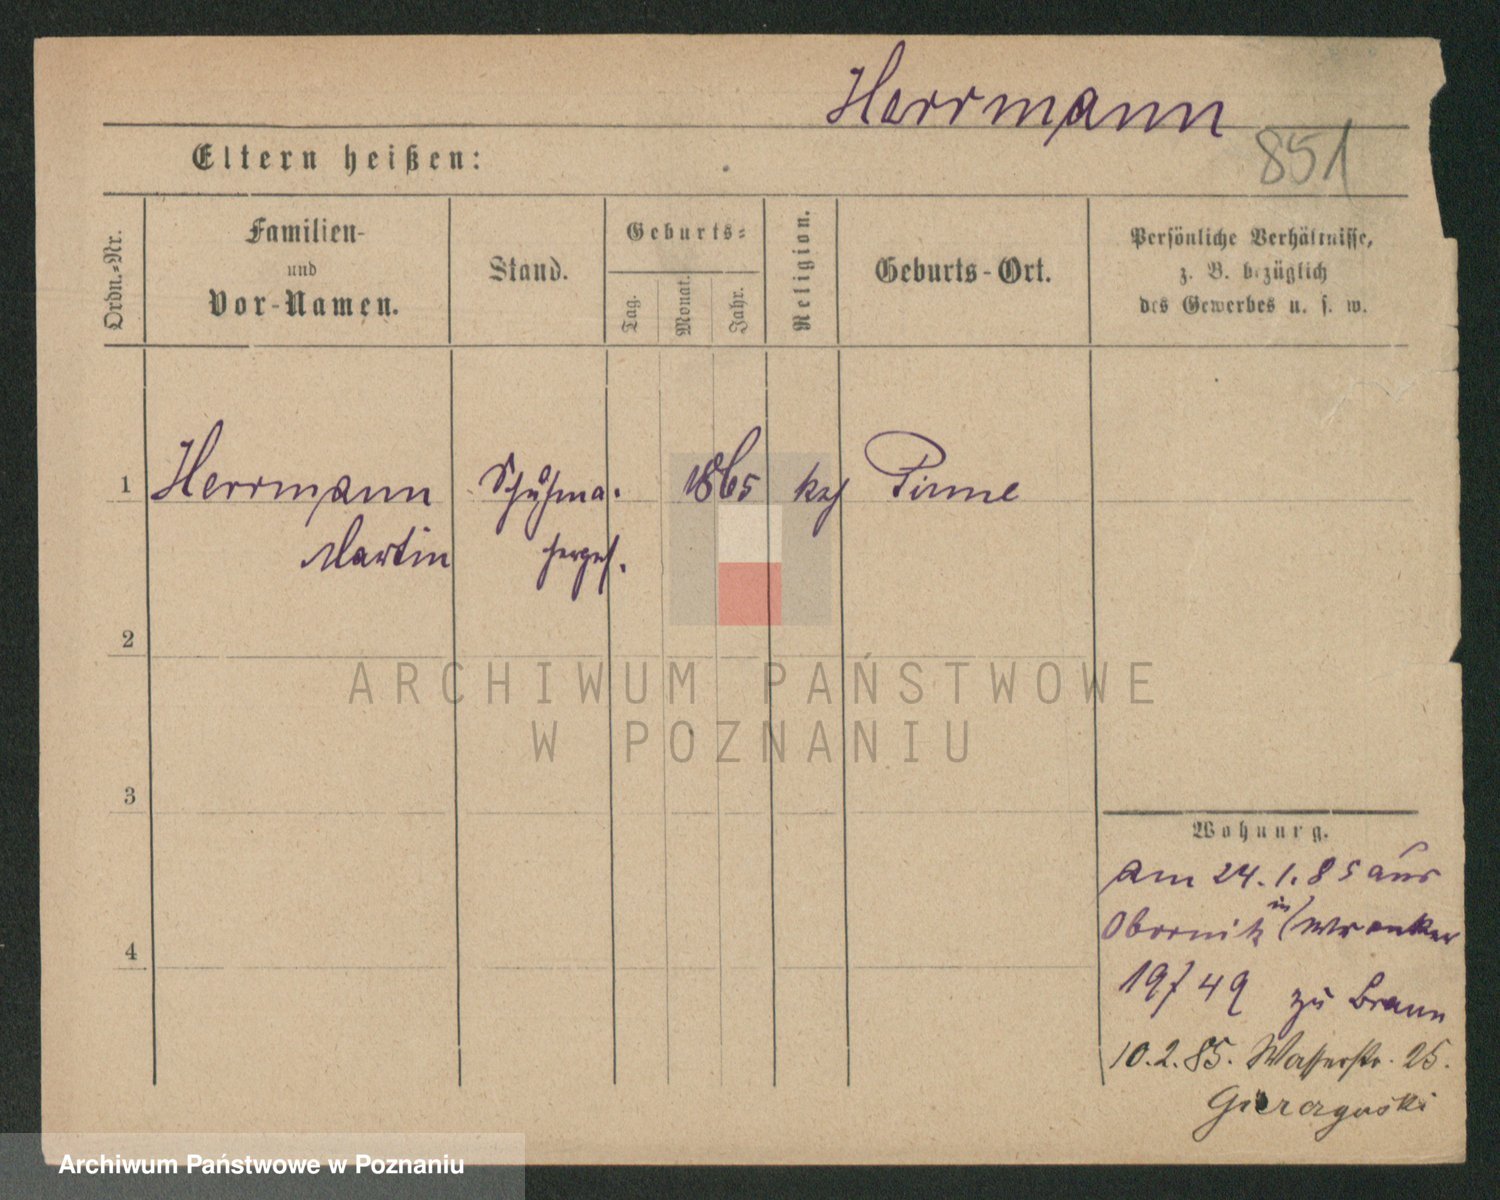 Herrmann
851
Eltern heißen:
Ordn.-Nr.
Familien-
und
Vor-Namen.
Stand.
Geburts-
Tag.
Monat.
Jahr.
Religion.
Geburts-Ort.
Persönliche Verhältnisse,
z. B. bezüglich
des Gewerbes u. s. w.
1 Herrmann Schuhma- 1865 kath Pinne
Martin
2
ARCHIWUM PAŃSTWOWE
W POZNANIU
3
Wohnung.
am 24.1.85 aus
4
Obornik in Wronker
19/49 zu Braun
10.2.85. Wasserstr. 25.
Archiwum Państwowe w Poznaniu